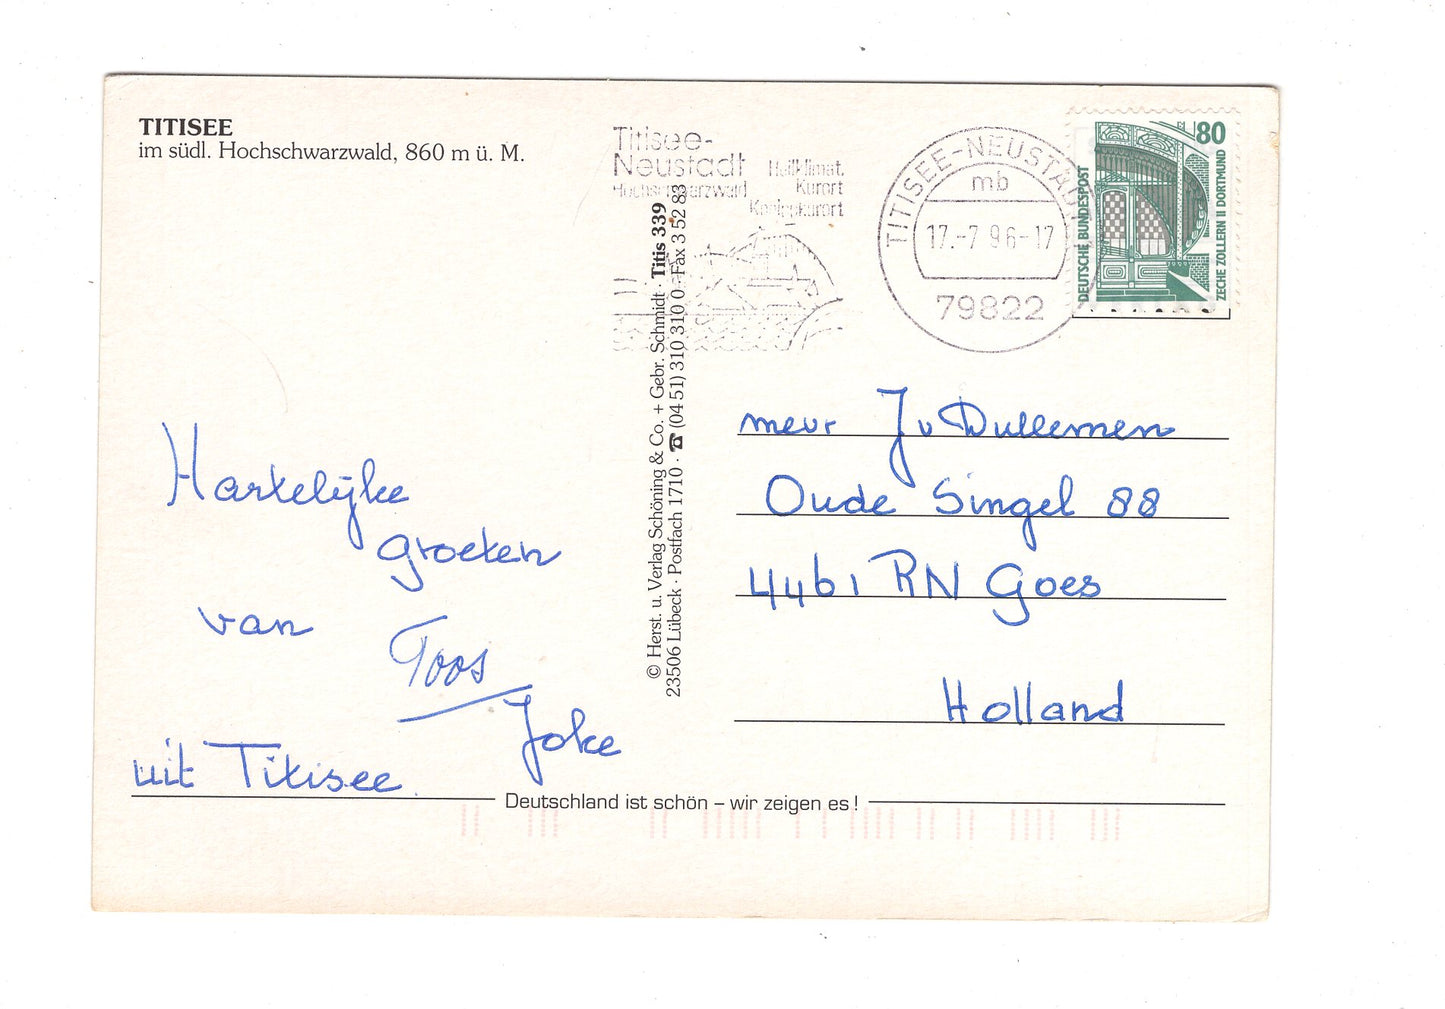 TITISEE
im südl. Hochschwarzwald, 860 m ü. M.
Titisee-
Neustadt
Hochschwarzwald
Heilklimat.
Kurort
Kneippkurort
TITISEE-NEUSTADT
mb
17.-7.96-17
79822
80
DEUTSCHE BUNDESPOST
ZECHE ZOLLERN II DORTMUND
© Herst. u. Verlag Schöning & Co. + Gebr. Schmidt · Titis 339
23506 Lübeck · Postfach 1710 · ☎ (04 51) 310 310 0 · Fax 3 52 83
Hartelijke
groeten
van
Toos
Joke
uit Titisee.
meur J v Dullemen
Oude Singel 88
4461 RN Goes
Holland
Deutschland ist schön – wir zeigen es!